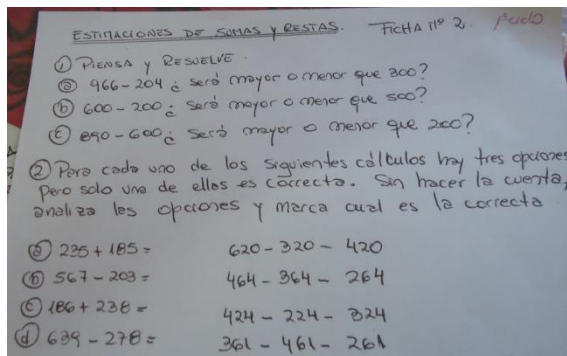 ESTIMACIONES DE SUMAS Y RESTAS. FICHA Nº 2. 1º ciclo
① PIENSA Y RESUELVE.
ⓐ 966-204 ¿ Será mayor o menor que 300?
ⓑ 600-200 ¿ Será mayor o menor que 500?
ⓒ 890-600 ¿ Será mayor o menor que 200?
② Para cada uno de los siguientes cálculos hay tres opciones
pero solo una de ellas es correcta. Sin hacer la cuenta,
analiza las opciones y marca cual es la correcta
ⓐ 235 + 185 = 620 - 320 - 420
ⓑ 567 - 203 = 464 - 364 - 264
ⓒ 186 + 238 = 424 - 224 - 324
ⓓ 639 - 278 = 361 - 461 - 261